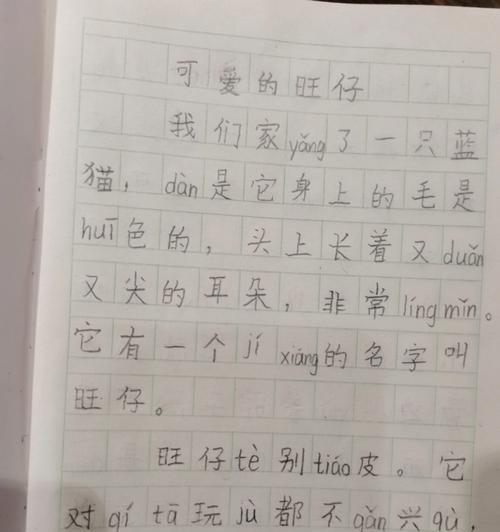 可爱的旺仔
我们家yǎng了一只蓝
猫，dàn是它身上的毛是
huī色的，头上长着又duǎn
又尖的耳朵，非常líng mǐn。
它有一个jí xiáng的名字叫
旺仔。
旺仔tè别tiáo皮。它
对qí tā玩jù都不gǎn兴qù，